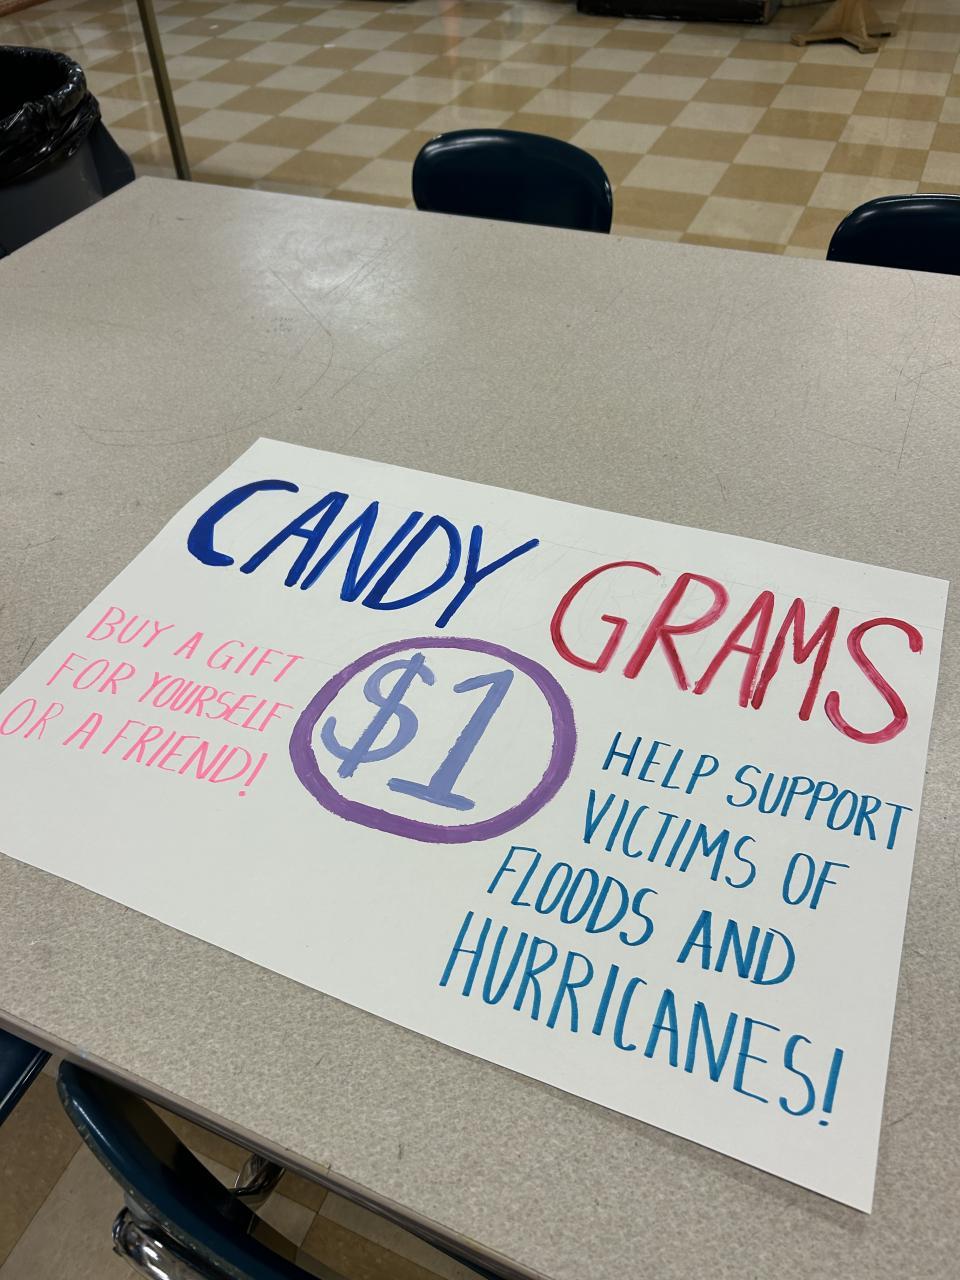 CANDY GRAMS
BUY A GIFT
FOR YOURSELF
OR A FRIEND!
$1
HELP SUPPORT
VICTIMS OF
FLOODS AND
HURRICANES!